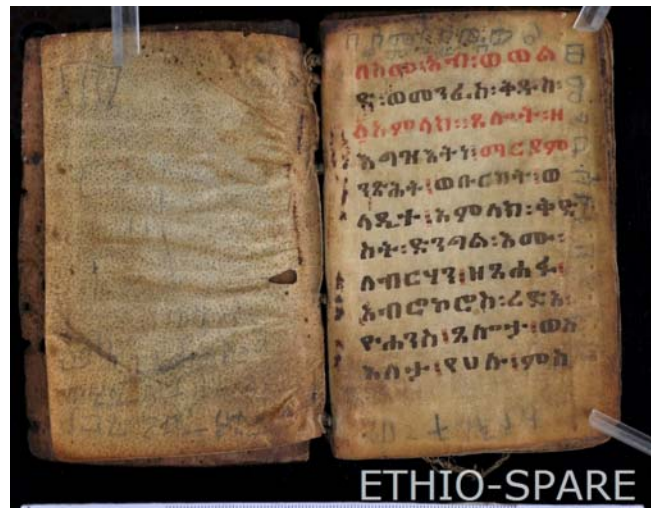 በስመ፡ አብ፡ ወወል
ድ፡ ወመንፈስ፡ ቅዱስ፡
፩አምላክ። ጸሎት፡ ዘ
እግዝእትነ፡ ማርያም
ንጽሕት፡ ወቡርክት፡ ወ
ላዲተ፡ አምላክ፡ ቅድ
ስት፡ ድንግል፡ እሙ፡
ለብርሃን፡ ዘጸሐፋ፡
አብሮኮሮስ፡ ረድአ
ዮሐንስ፡ ጸሎታ፡ ወአ
እለታ፡ የሀሉ፡ ምስ
ETHIO-SPARE